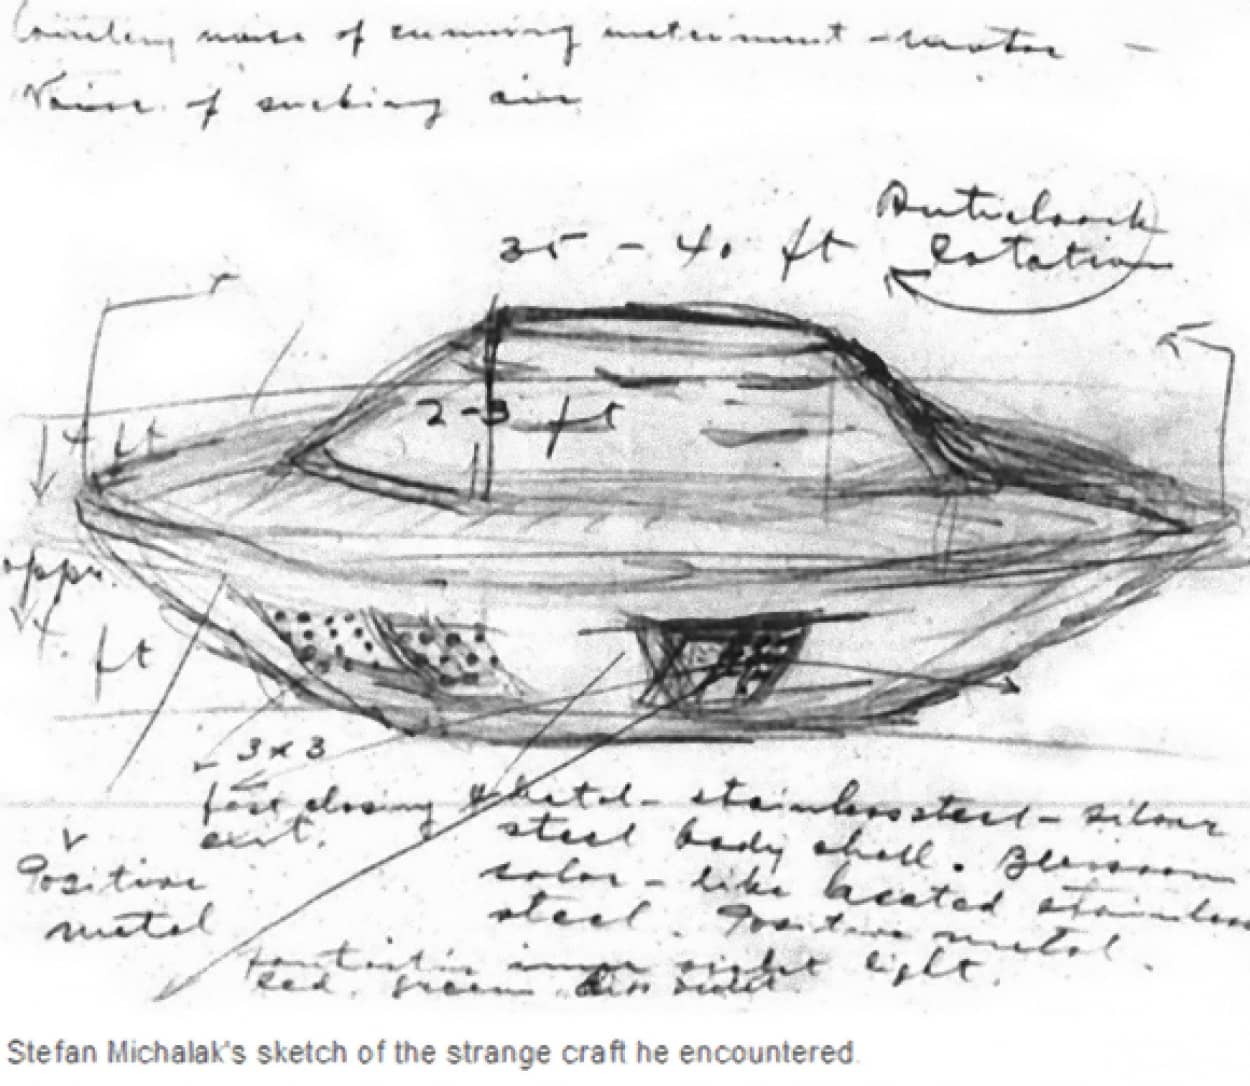 noise of running instrument - motor -
Noise of sucking air
Anticlock
35 - 40 ft
Rotation
2-3 ft
4 ft
appr.
4. ft
3 x 3
fast closing
exit.
Metal - stainless steel - silver
steel body shell.
color - like heated stainless
steel. Positive metal.
Positive
metal
fantastic inner light.
Red. green.
Stefan Michalak's sketch of the strange craft he encountered.